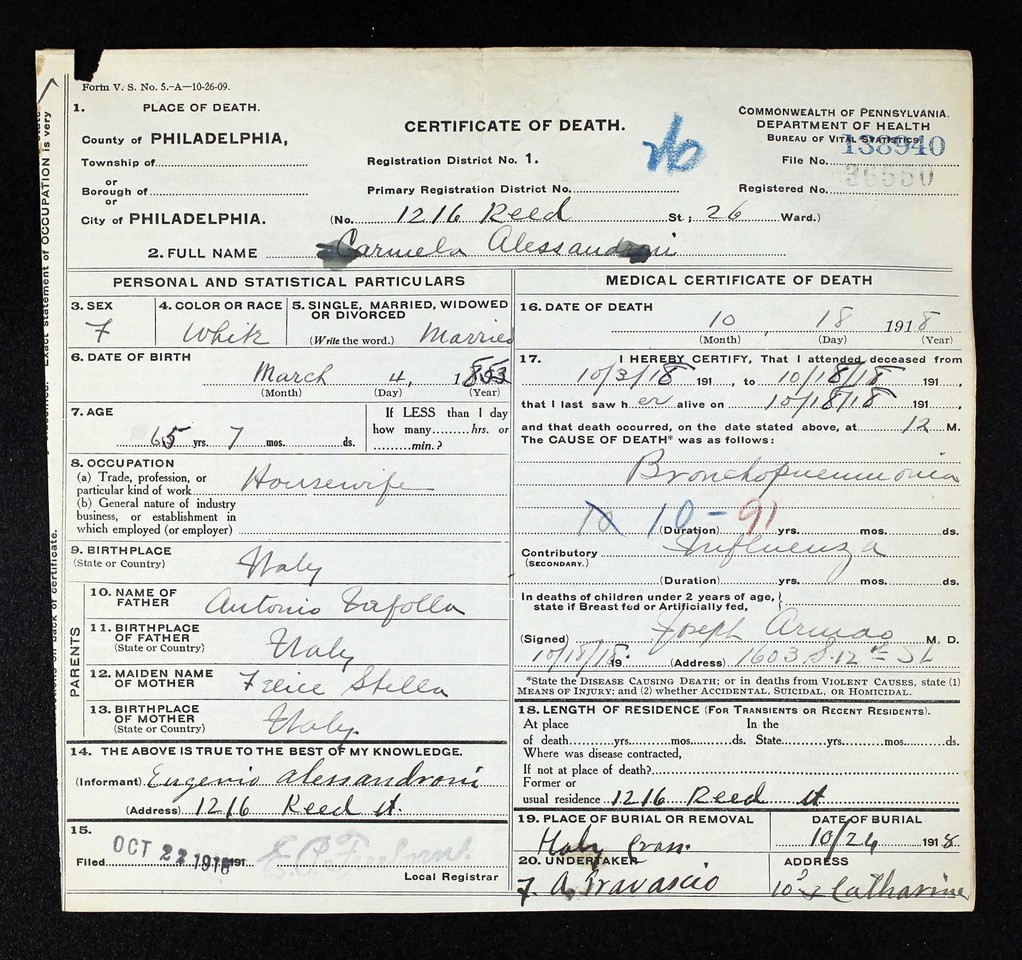 Form V. S. No. 5.-A—10-26-09.
1. PLACE OF DEATH.
County of PHILADELPHIA,
Township of
or
Borough of
or
City of PHILADELPHIA.
CERTIFICATE OF DEATH.
Registration District No. 1.
Primary Registration District No.
(No. 1216 Reed St; 26 Ward.)
26
COMMONWEALTH OF PENNSYLVANIA.
DEPARTMENT OF HEALTH
BUREAU OF VITAL STATISTICS.
File No. 138940
Registered No. 36550
2. FULL NAME Carmela Alessandroni
PERSONAL AND STATISTICAL PARTICULARS
3. SEX
F
4. COLOR OR RACE
White
5. SINGLE, MARRIED, WIDOWED
OR DIVORCED
(Write the word.) Married
6. DATE OF BIRTH
March 4, 1853
(Month) (Day) (Year)
7. AGE
65 yrs. 7 mos. ds.
If LESS than 1 day
how many hrs. or
min.?
8. OCCUPATION
(a) Trade, profession, or
particular kind of work Housewife
(b) General nature of industry
business, or establishment in
which employed (or employer)
9. BIRTHPLACE
(State or Country) Italy
PARENTS
10. NAME OF
FATHER Antonio Tafolla
11. BIRTHPLACE
OF FATHER
(State or Country) Italy
12. MAIDEN NAME
OF MOTHER Felice Stella
13. BIRTHPLACE
OF MOTHER
(State or Country) Italy.
14. THE ABOVE IS TRUE TO THE BEST OF MY KNOWLEDGE.
(Informant) Eugenio Alessandroni
(Address) 1216 Reed st.
15.
Filed OCT 22 1918 191
Local Registrar
MEDICAL CERTIFICATE OF DEATH
16. DATE OF DEATH
10, 18 1918
(Month) (Day) (Year)
17. I HEREBY CERTIFY, That I attended deceased from
10/3/18 191 , to 10/18/18 191 ,
that I last saw her alive on 10/18/18 191 ,
and that death occurred, on the date stated above, at 12 M.
The CAUSE OF DEATH* was as follows:
Bronchopneumonia
10 10-91
(Duration) yrs. mos. ds.
Contributory Influenza
(SECONDARY.)
(Duration) yrs. mos. ds.
In deaths of children under 2 years of age,
state if Breast fed or Artificially fed,
(Signed) Joseph Armao M. D.
10/18/18 19 . (Address) 1603 S. 12th St
*State the DISEASE CAUSING DEATH; or in deaths from VIOLENT CAUSES, state (1)
MEANS OF INJURY; and (2) whether ACCIDENTAL, SUICIDAL, OR HOMICIDAL.
18. LENGTH OF RESIDENCE (FOR TRANSIENTS OR RECENT RESIDENTS).
At place In the
of death yrs. mos. ds. State yrs. mos. ds.
Where was disease contracted,
If not at place of death?
Former or
usual residence 1216 Reed st
19. PLACE OF BURIAL OR REMOVAL
Holy Cross
DATE OF BURIAL
10/24 1918
20. UNDERTAKER
F. A. Travascio
ADDRESS
Catharine
Exact statement of OCCUPATION is very
on back of certificate.